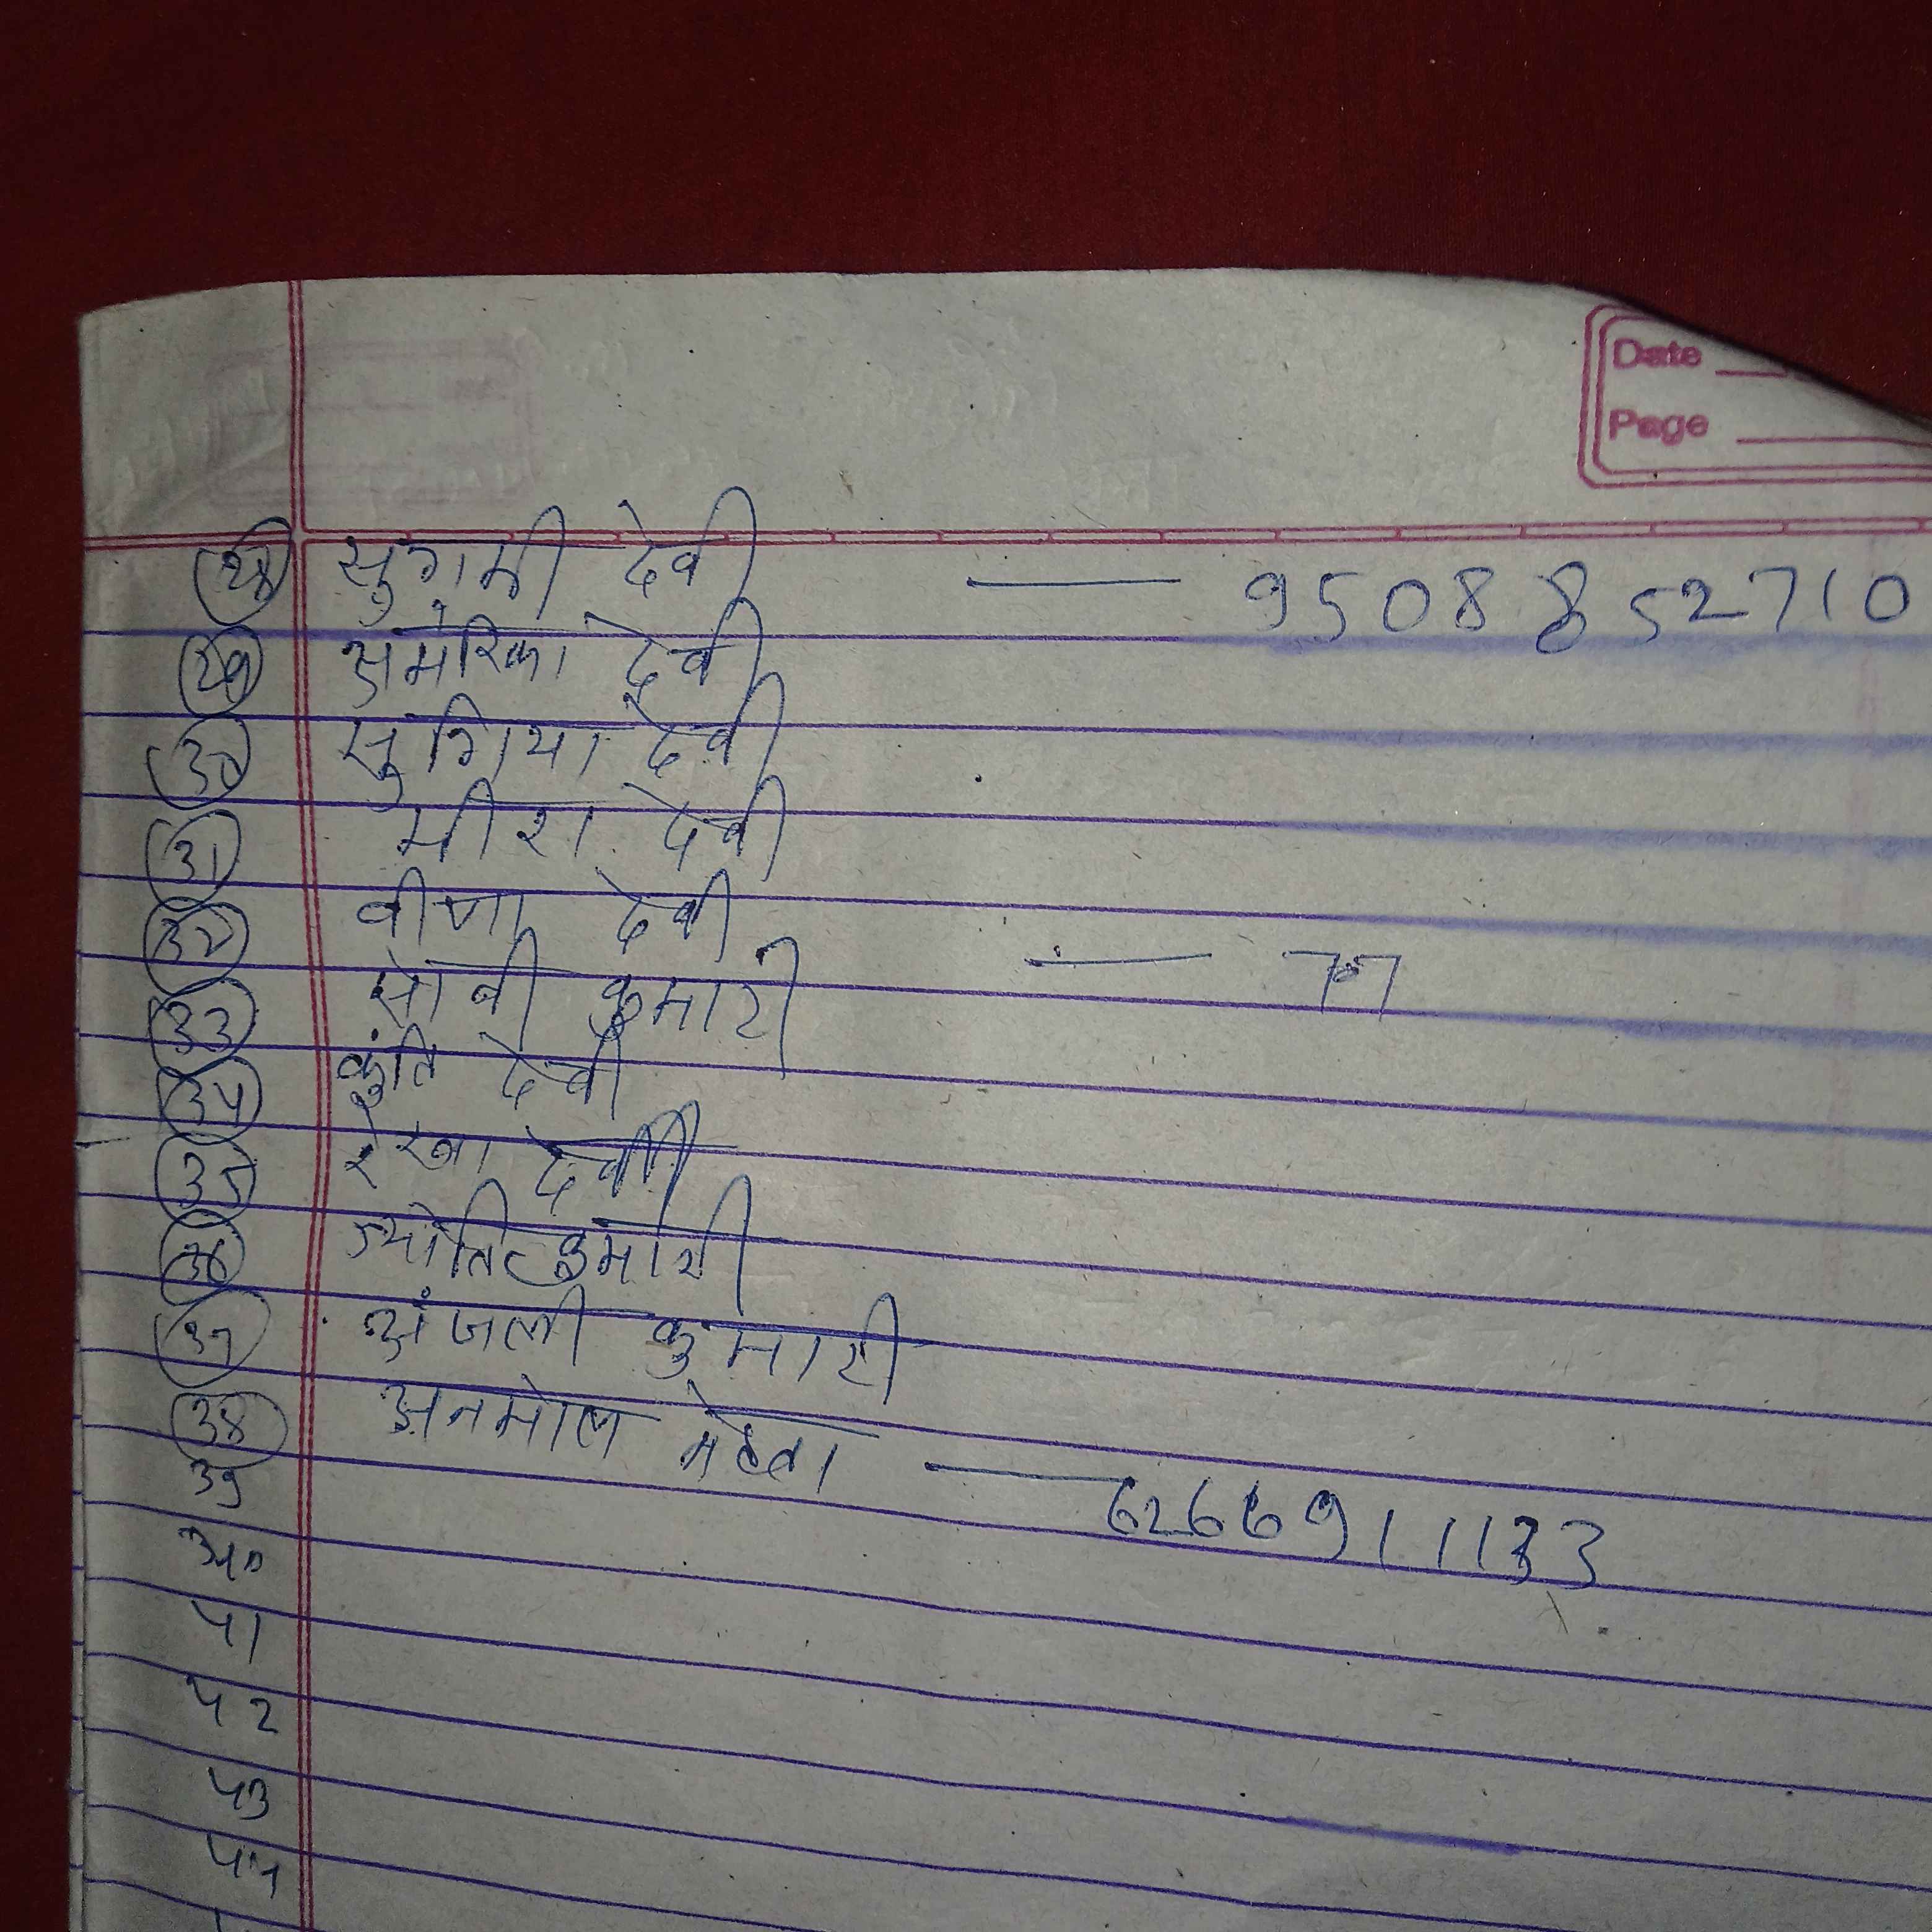 Date
Page
28 सुगमी देवी — 9508852710
29 अमेरिका देवी
30 सुगिया देवी
31 मीरा देवी
32 वीणा देवी
33 सोनी कुमारी — 77
34 कुंति देवी
35 रेखा देवी
36 ज्योति कुमारी
37 अंजली कुमारी
38 अनमोल मेहता — 6266911133
39
40
41
42
43
44